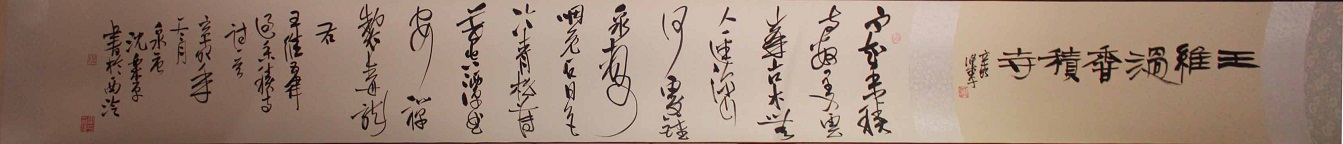 王維過香積寺
辛卯
不知香積
寺數里入雲
峰古木無
人逕深山
何處鐘
泉聲
咽危石日色
冷青松薄
暮空潭曲
安禪
製毒龍
右
王維五律
過香積寺
詩一首
辛卯年
月
泉唐
沈
書於西泠